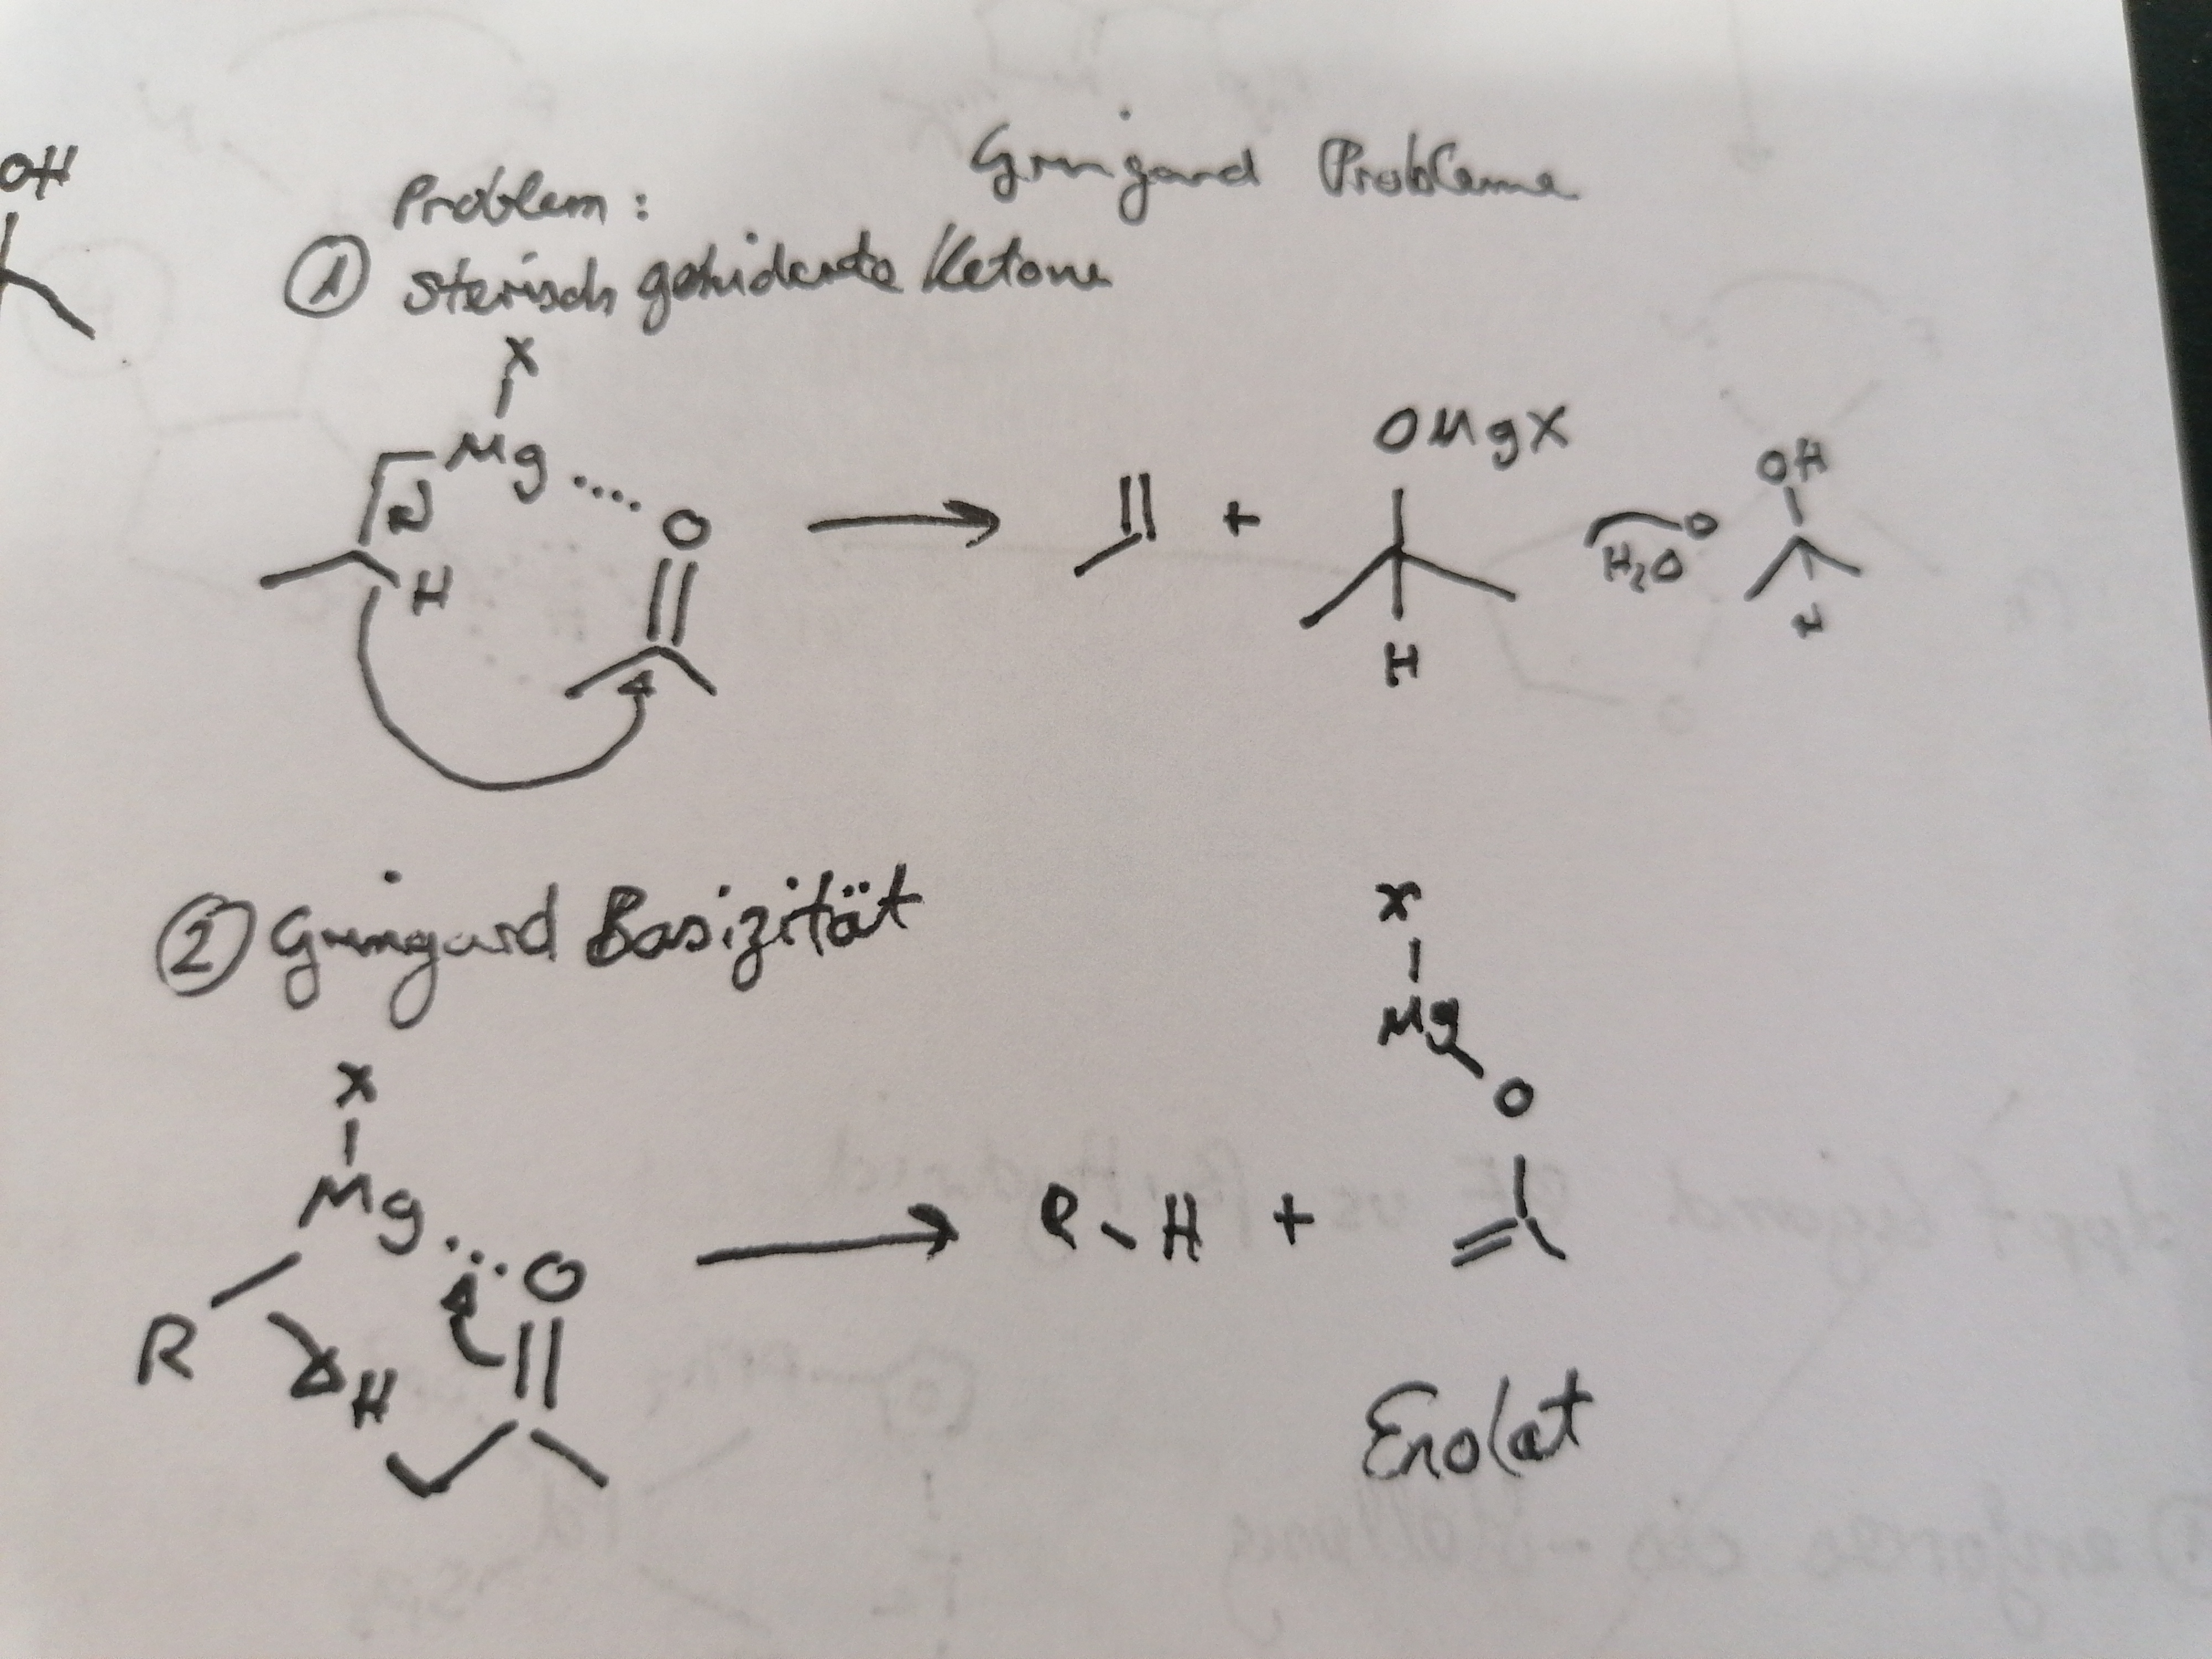 OH
Gringard Probleme
Problem:
① sterisch gehiderte Ketone
X
Mg
O
H
+
OMgX
H
H₂O
OH
H
② Gringard Basizität
X
Mg
O
R
H
R-H +
X
Mg
O
Enolat